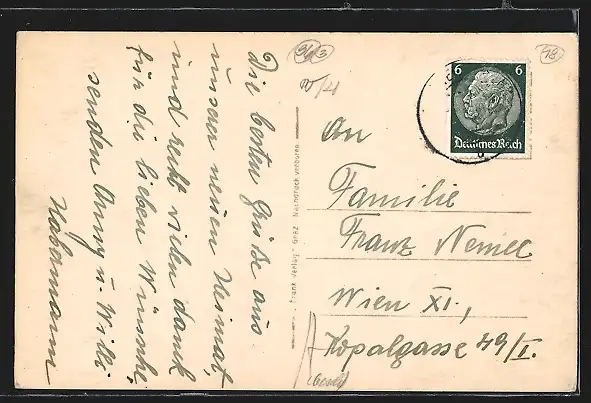 Die besten Grüße aus
unserer neuen Heimat,
und recht vielen Dank
für die lieben Wünsche,
senden Anny u. Willi
Habermann
Frank Verlag - Graz Nachdruck verboten
963
48
6 6
Deutsches Reich
An
Familie
Franz Nemec
Wien XI.,
Kopalgasse 49/I.